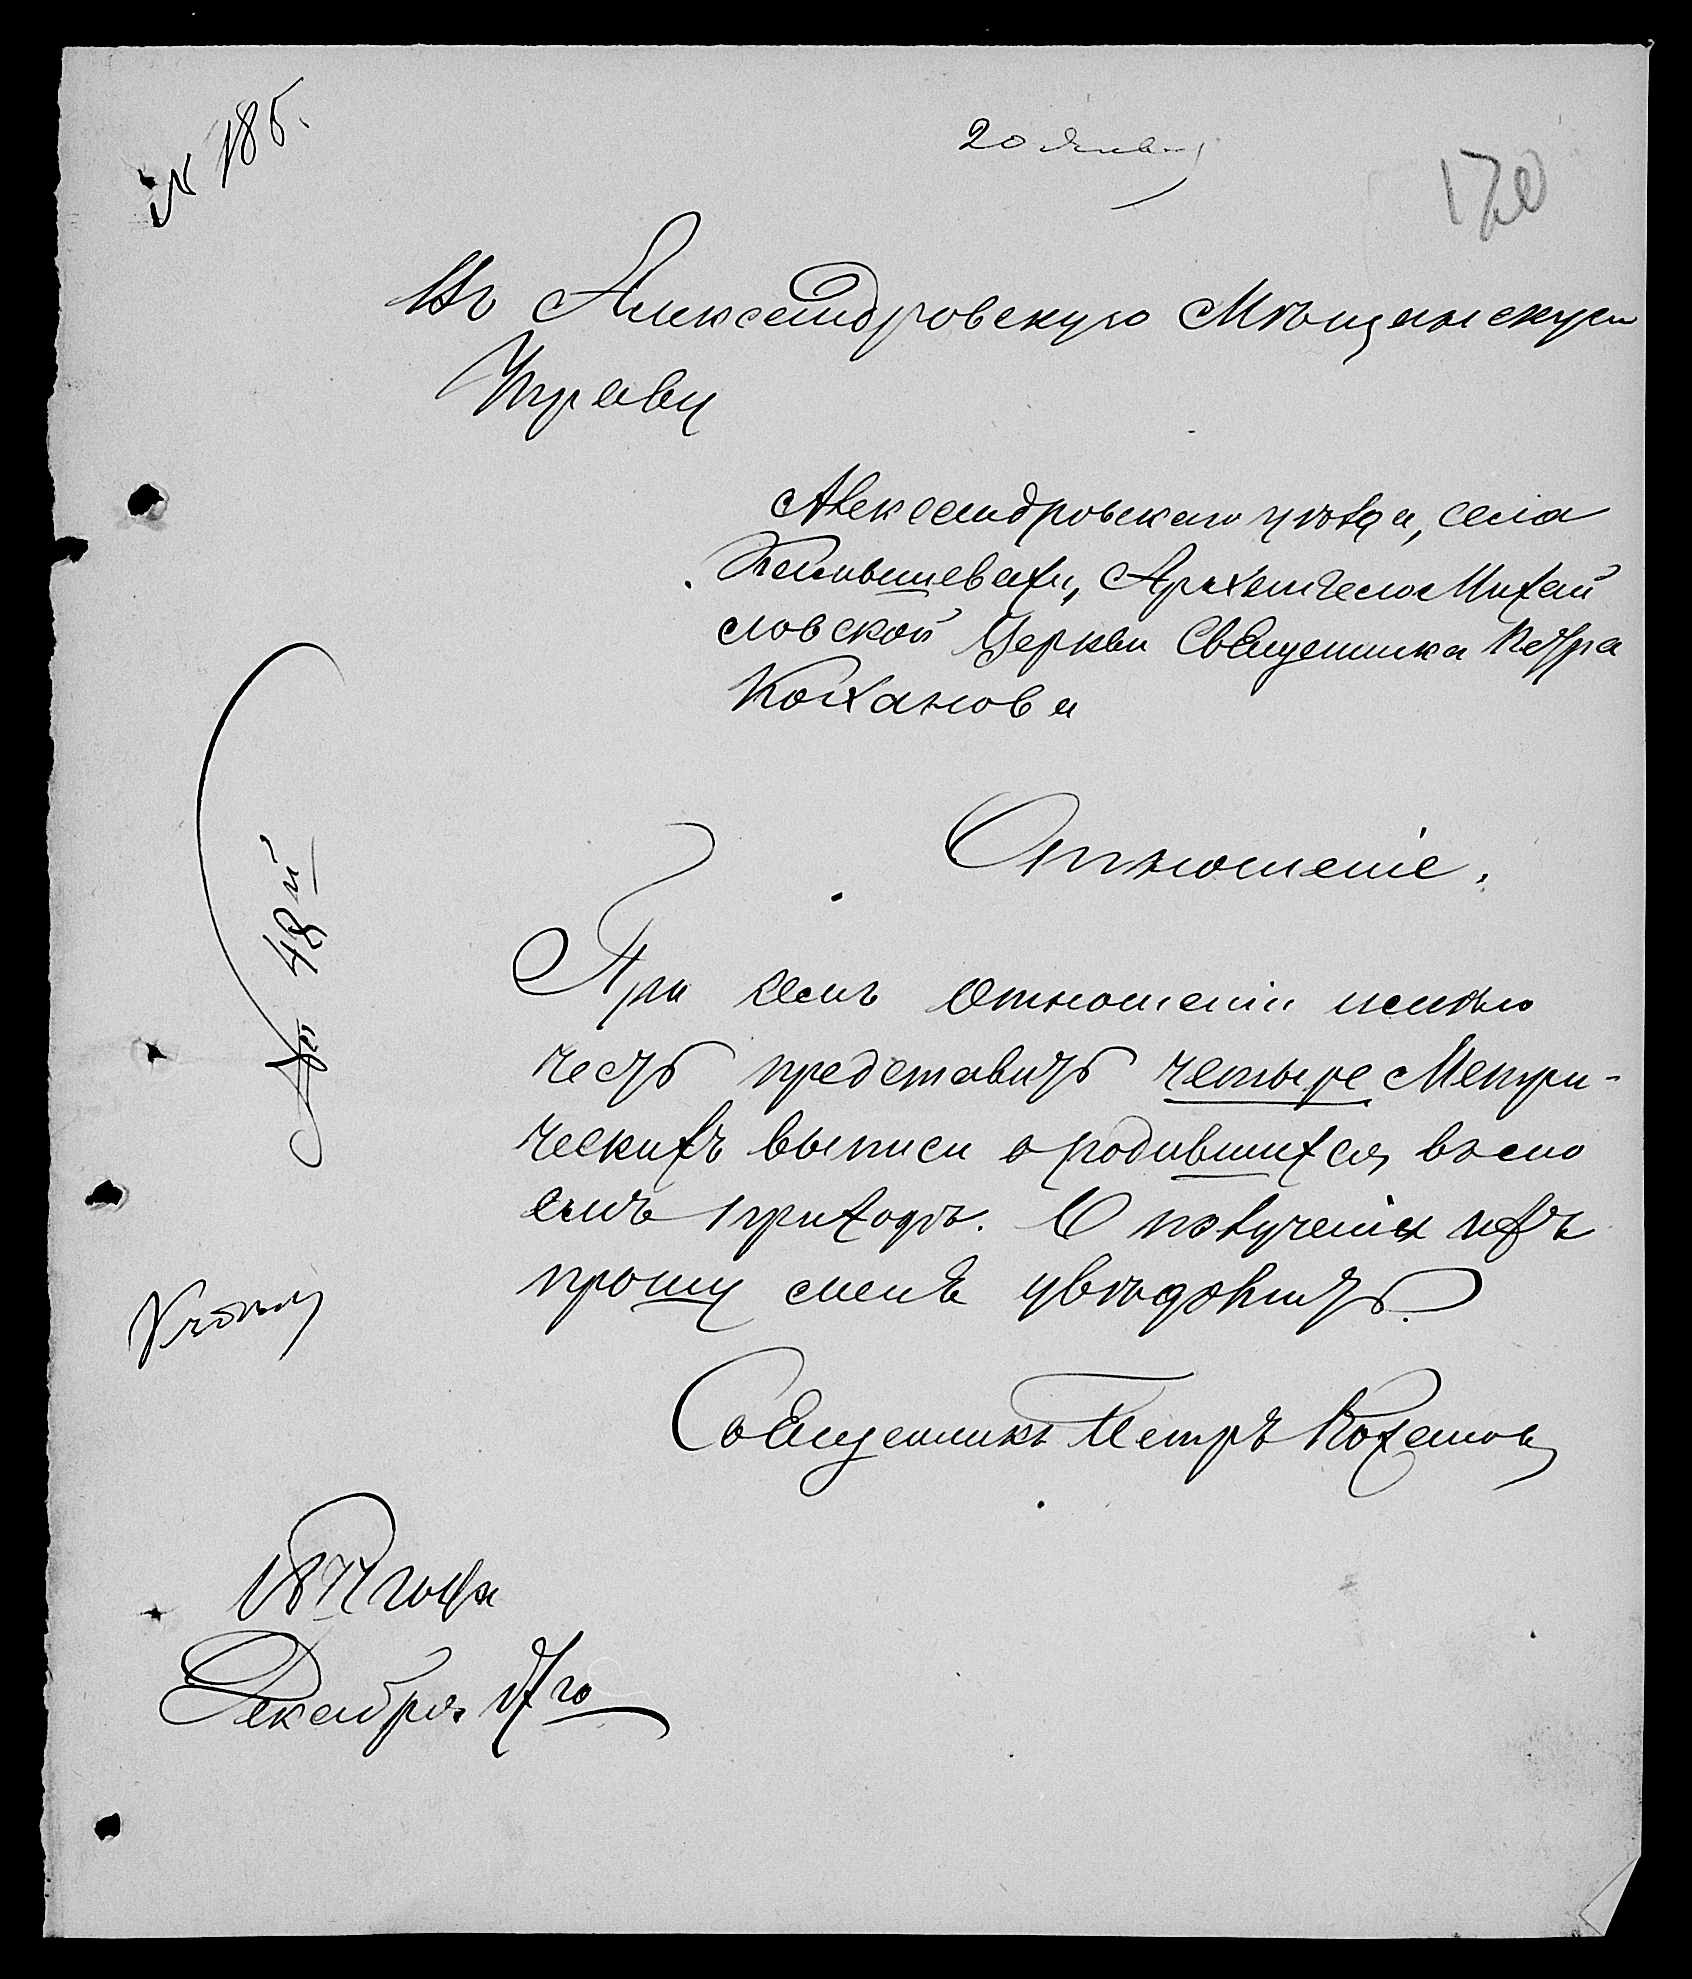 № 185.
20 Январ
120
Въ Александровскую Мѣщанскую
Управу
Александровскаго уѣзда, села
Камышевахи, Архангело Михай
ловской Церкви Священника Петра
Коханова
Отношеніе.
При семъ отношеніи имѣю
честь представить четыре Метри-
ческихъ выписи о родившихся въ мо
емъ приходѣ. О полученіи ихъ
прошу меня увѣдомить.
Священникъ Петръ Кохановъ
48й
1877 года
Декабря го